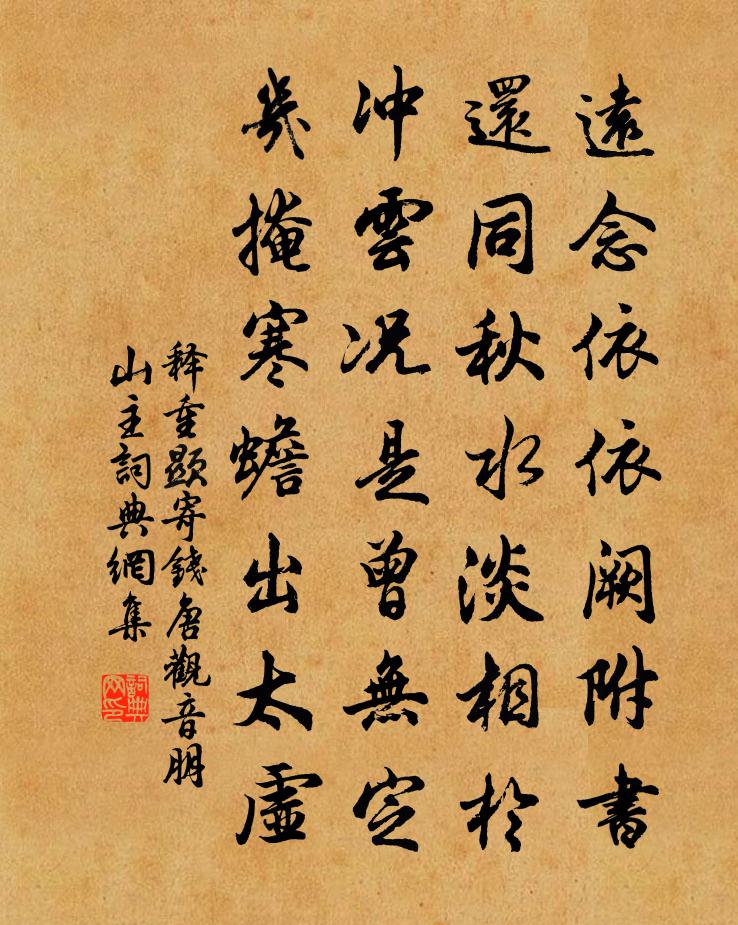 遠念依依闕附書
還同秋水淡相於
冲雲况是曾無定
幾掩寒蟾出太虛
释重顯寄錢唐觀音朋
山主詞典網集
詞典网印